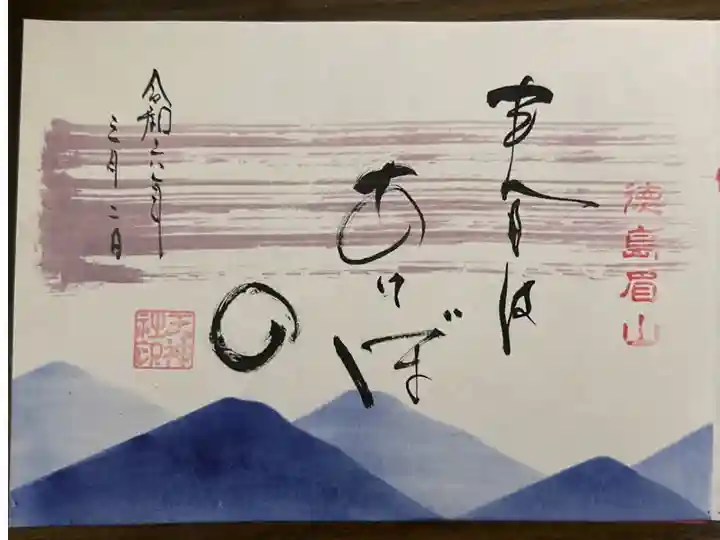 徳島眉山
春は
あけぼ
の
令和六年
三月二日
天神
社印